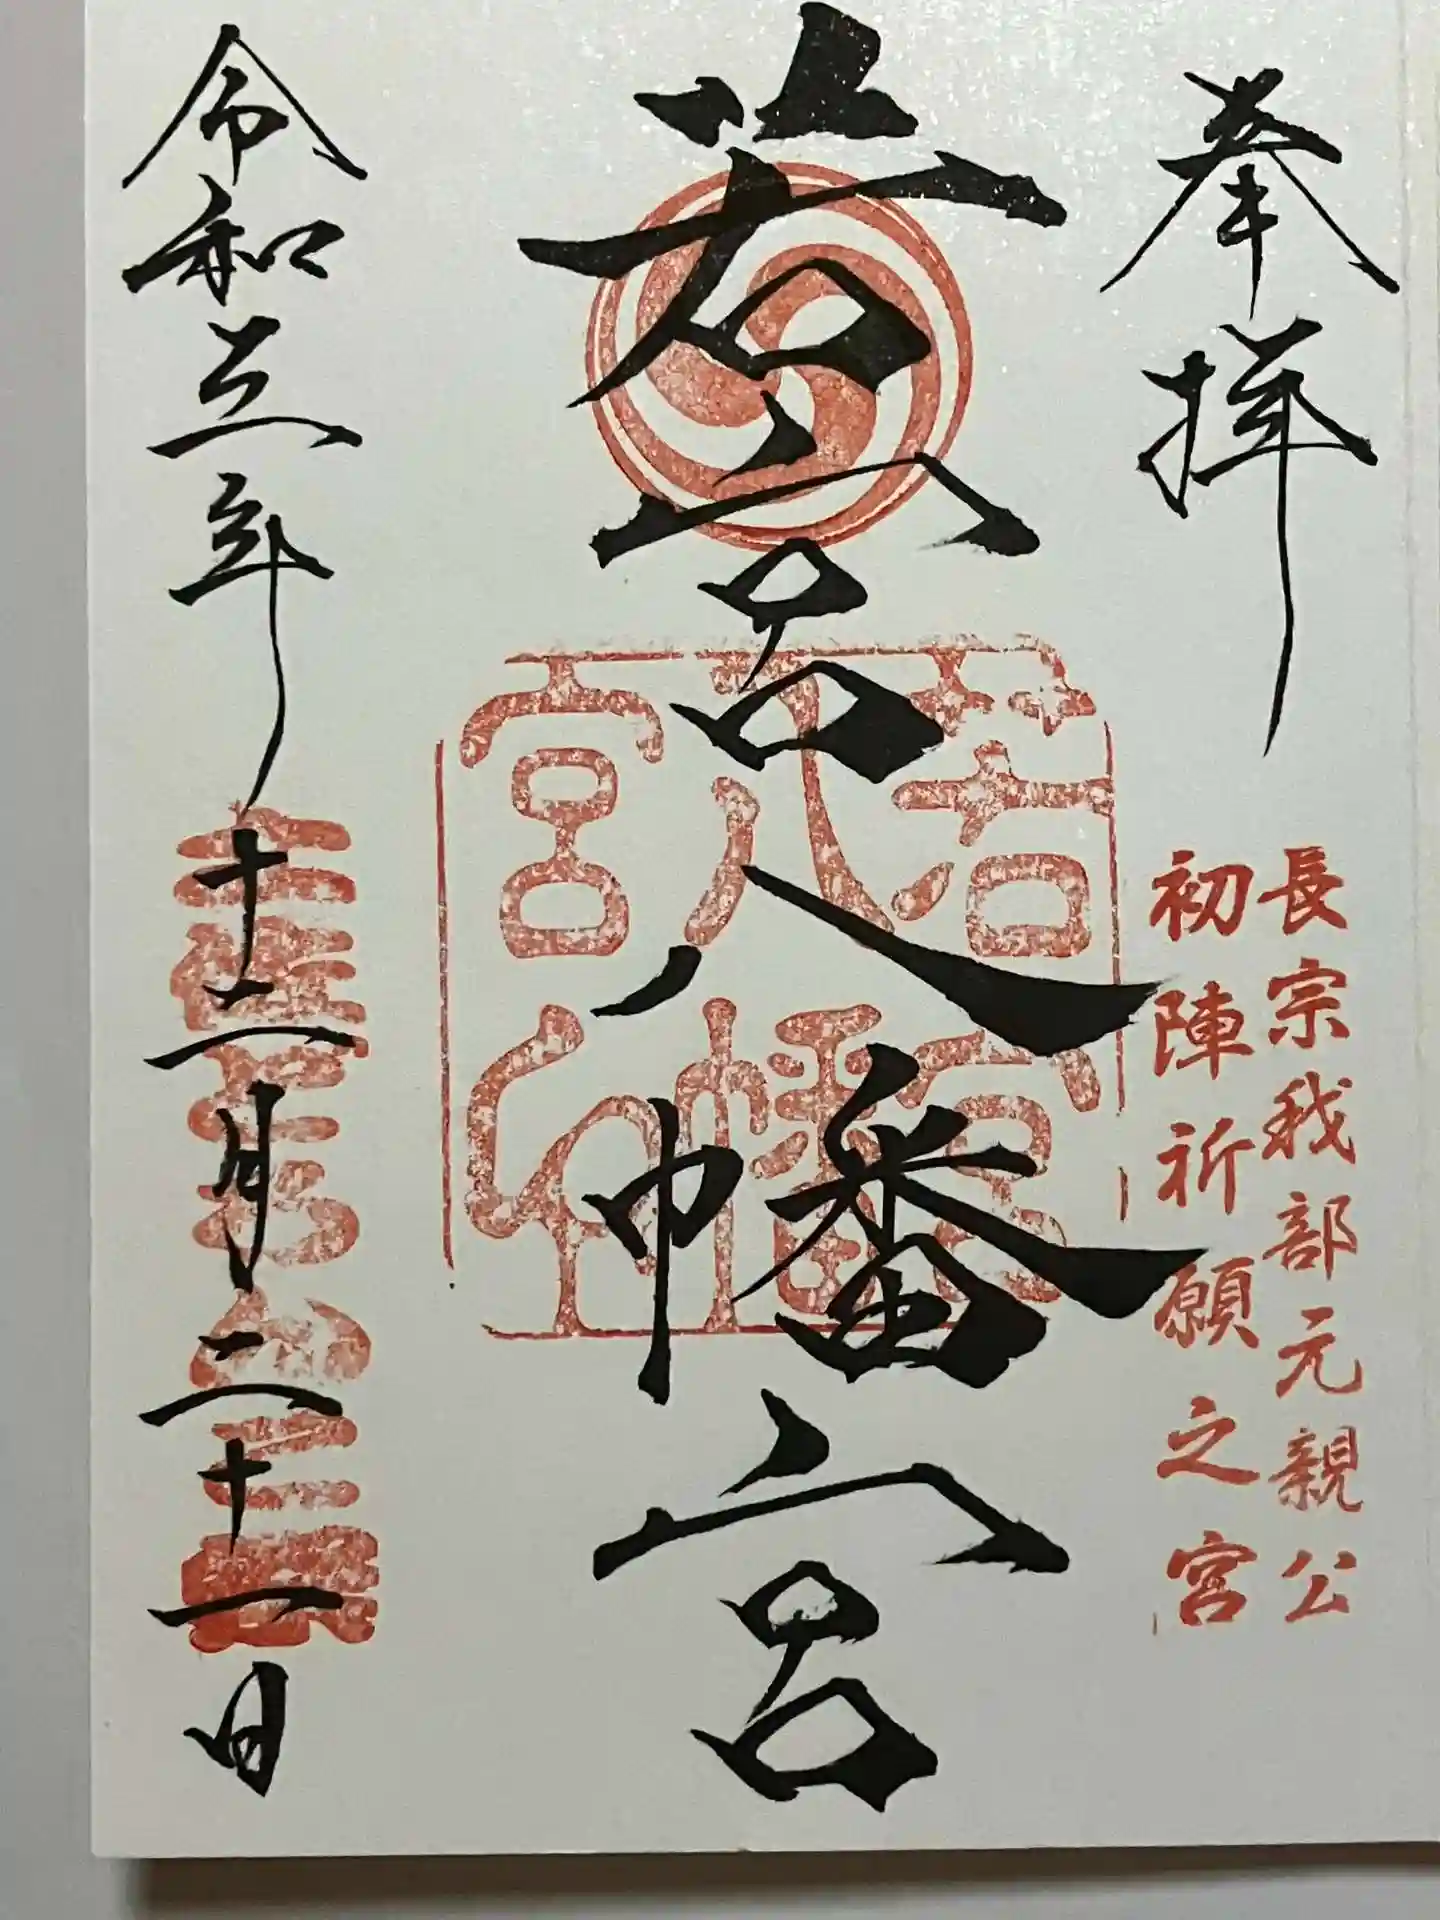 奉拝
長宗我部元親公
初陣祈願之宮
若宮八幡宮
若宮
八幡
宮印
令和三年十二月二十一日